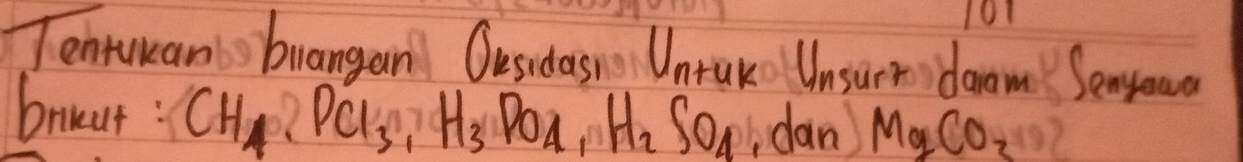 101
Tentukan bilangan Oksidasi Untuk Unsur² dalam Senyawa
brikut : CH4, PCl3, H3PO4, H2SO4, dan MgCO3